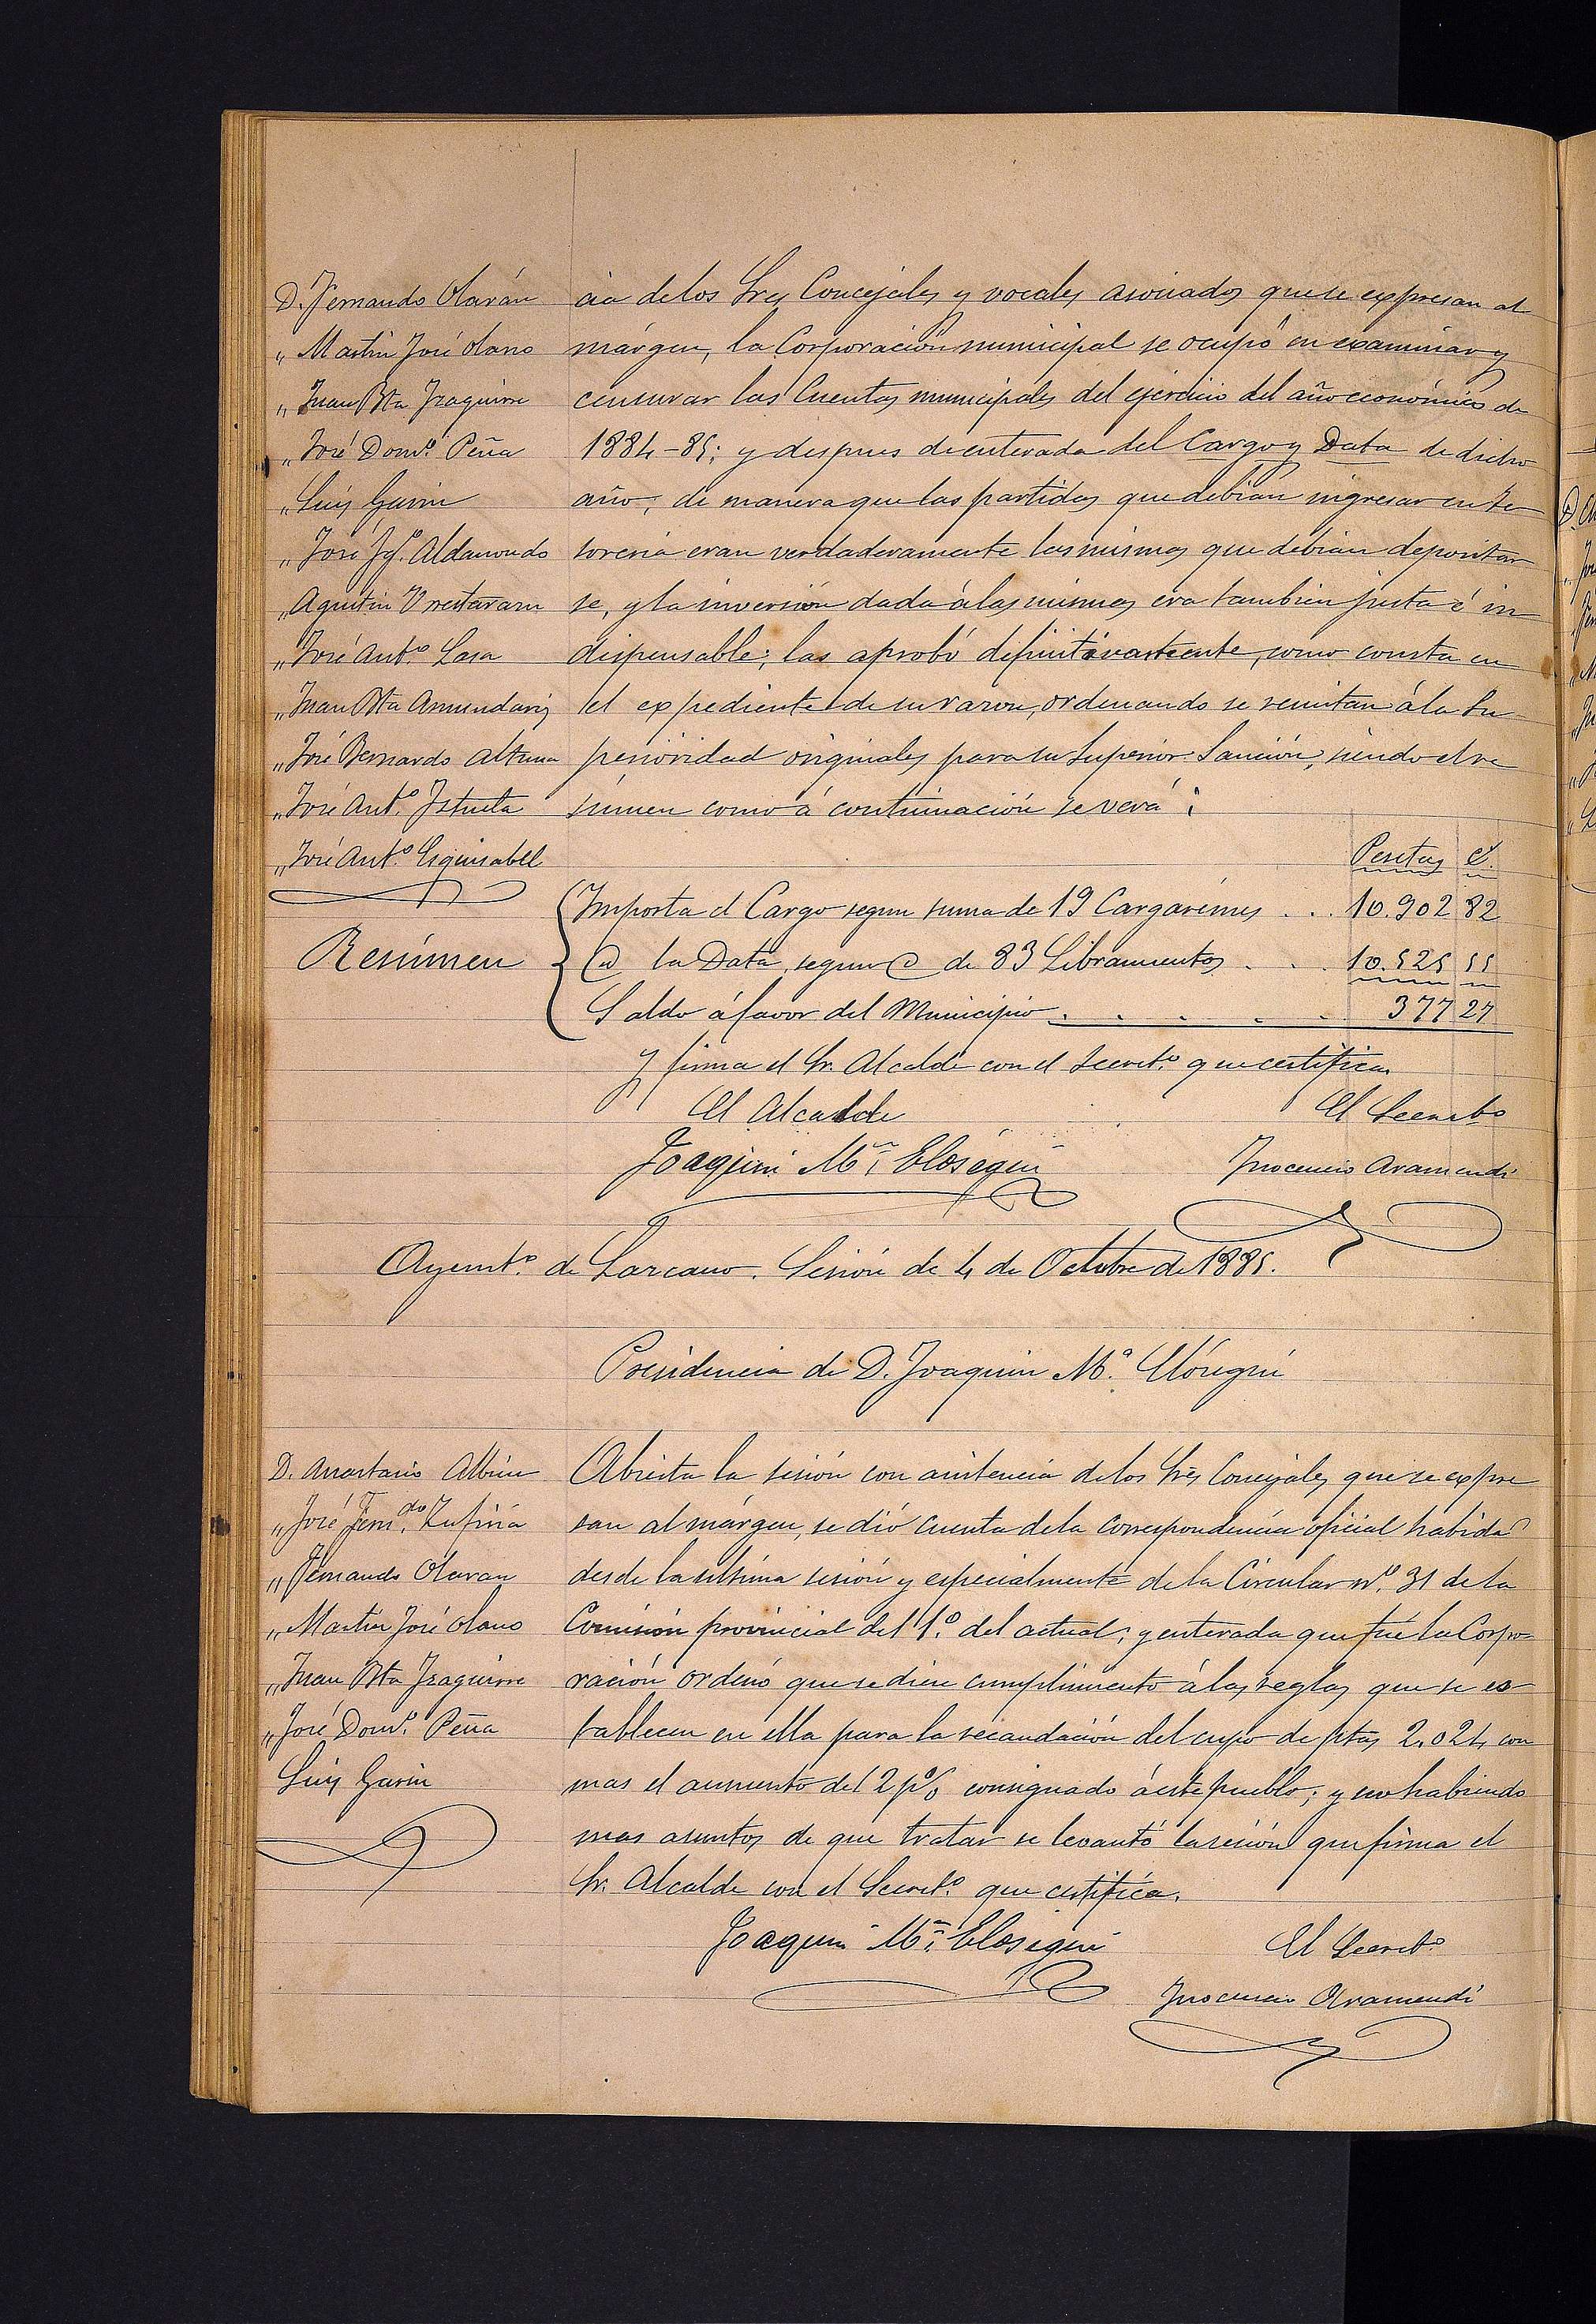 D. Fernando Olarán
„ Martin José Olano
„ Juan Bta Yzaguirre
„ José Dom.º Peña
„ Luis Garin
„ José Ygº. Aldasoro
„ Agustin Urrestarazu
„ José Ant.º Lasa
„ Juan Bta Amundariz
„ José Bernardo Altuna
„ José Ant.º Ystueta
„ José Ant.º Esquisabel
cia de los Sres Concejales y vocales asociados que se expresan al
márgen, la Corporación municipal se ocupó en examinar y
censurar las Cuentas municipales del ejercicio del año económico de
1884-85; y despues de enterada del Cargo y Data de dicho
año, de manera que las partidas que debian ingresar en te
soreria eran verdaderamente las mismas que debian depositar
se, y la inversión dada á las mismas era tambien justa é in
dispensable; las aprobó definitivamente, como consta en
el expediente de su razon, ordenando se remitan á la Su
perioridad originales para su Superior Sanción, siendo el re
súmen como á continuación se verá:
Pesetas Cs.
Resúmen
Importa el Cargo segun suma de 19 Cargarémes . . . 10.902 82
@ la Data, segun @ de 83 Libramientos . . . 10.525 55
Saldo á favor del Municipio . . . . . 377 27
Y firma el Sr. Alcalde con el Secret.º que certifica.
El Alcalde El Secretº
Joaquin Mª. Elosegui Ynocencio Aramendi
Ayunt.º de Lazcano. Sesión de 4 de Octubre de 1885.
Presidencia de D. Joaquin M.ª Elósegui
D. Anastasio Albisu
„ José Fern.do Zufiria
„ Fernando Olaran
„ Martin José Olano
„ Juan Bta Yzaguirre
„ José Dom.º Peña
Luis Garin
Abierta la sesión con asistencia de los Sres Concejales que se expre
san al márgen, se dió cuenta de la correspondencia oficial habida
desde la ultima sesión y especialmente de la Circular nº. 31 de la
Comisión provincial del 1.º del actual; y enterada que fué la Corpo=
ración ordenó que se diese cumplimiento á las reglas que se es
tablecen en ella para la recaudación del cupo de ptas 2.024, con
mas el aumento del 2 p% consignado á este pueblo; y no habiendo
mas asuntos de que tratar se levantó la sesión que firma el
Sr. Alcalde con el Secret.º que certifica.
Joaquin Mª. Elosegui El Secretº
Ynocencio Aramendi